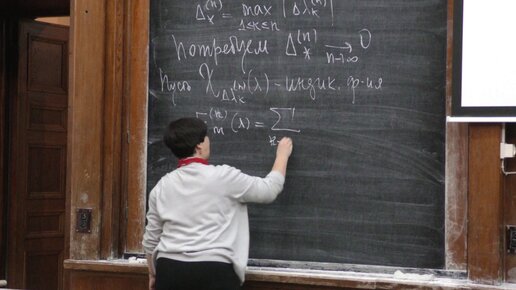 Δ_*^{(n)} = max_{1≤k≤n} |Δλ_k^{(n)}|
потребуем Δ_*^{(n)} → 0 n→∞
Пусть χ_{Δλ_k^{(n)}}(λ) - индик. ф-ия
_m^{(n)}(λ) = Σ_k